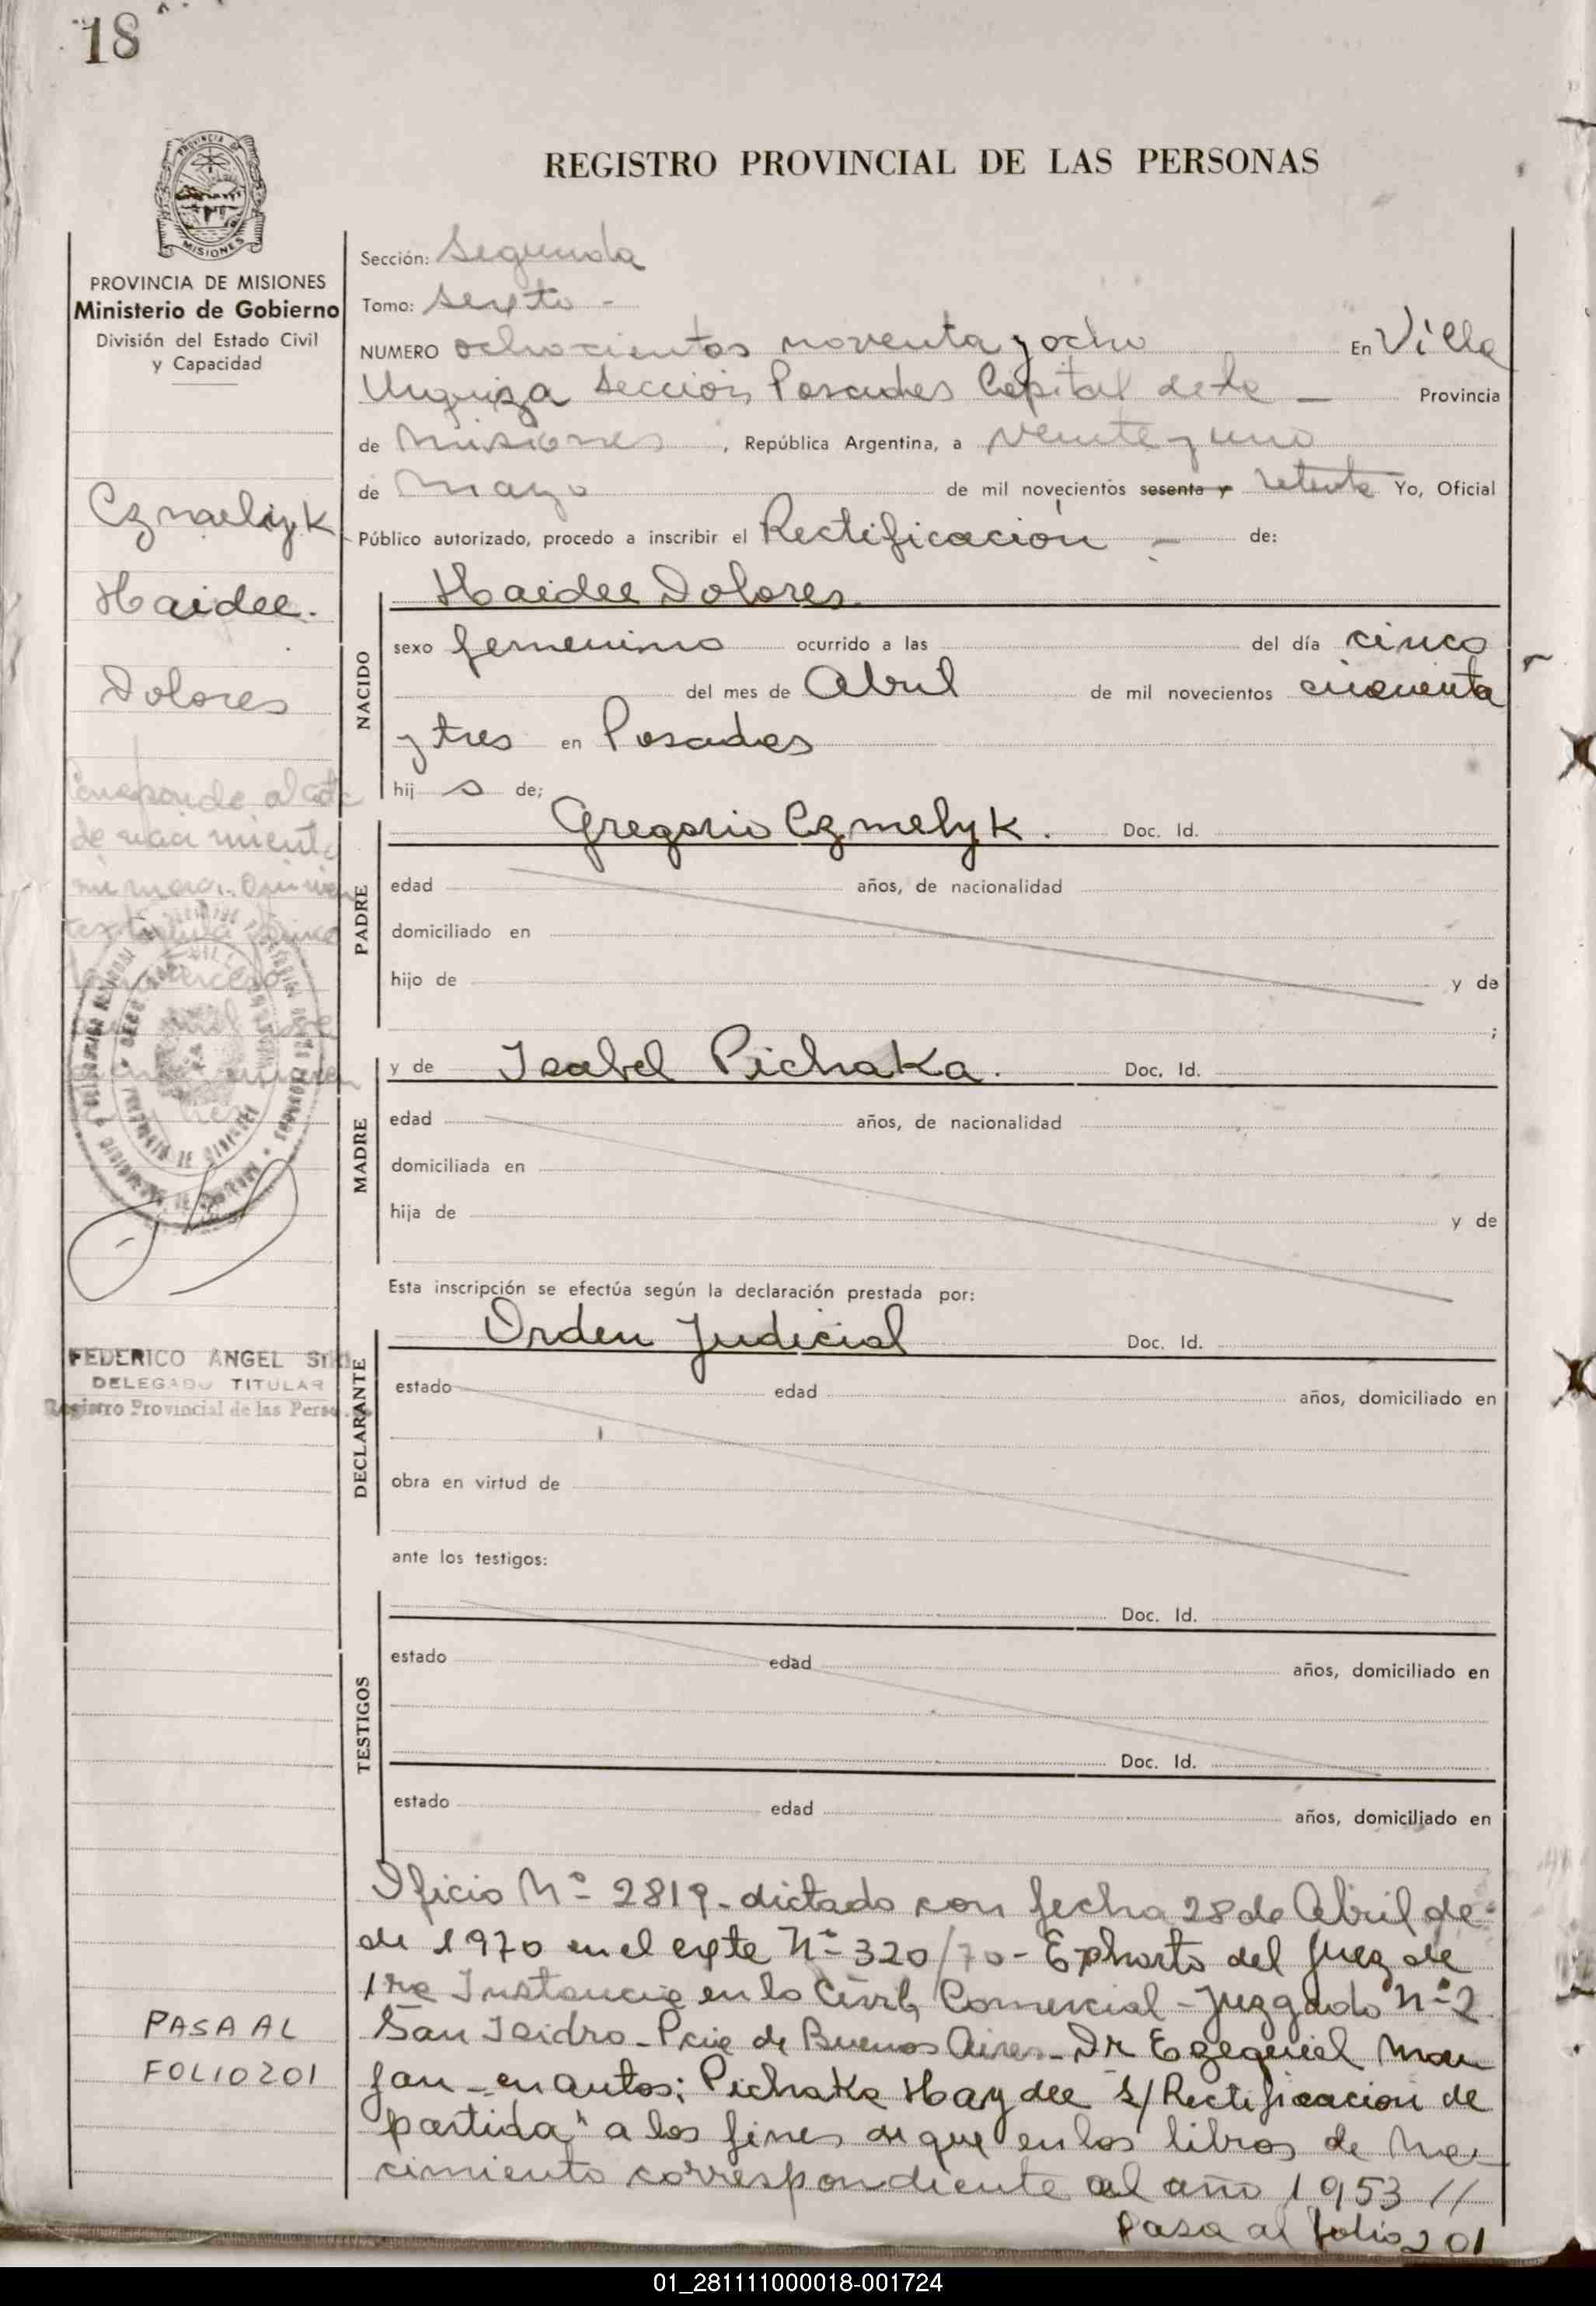 18
PROVINCIA DE
MISIONES
PROVINCIA DE MISIONES
Ministerio de Gobierno
División del Estado Civil
y Capacidad
Czmelyk
Haidee.
Dolores
Corresponde al acta
de nacimiento
FEDERICO ANGEL
DELEGADO TITULAR
Registro Provincial de las Perso
PASA AL
FOLIO 201
REGISTRO PROVINCIAL DE LAS PERSONAS
Sección: Segunda
Tomo: Sexto -
NUMERO ochocientos noventa y ocho En Villa
Urquiza Sección Posadas Capital de la — Provincia
de Misiones, República Argentina, a veinte y uno
de Mayo de mil novecientos sesenta y setenta Yo, Oficial
Público autorizado, procedo a inscribir el Rectificación — de:
NACIDO
Haidee Dolores
sexo femenino ocurrido a las del día cinco
del mes de Abril de mil novecientos cincuenta
y tres en Posadas
hij a de;
PADRE
Gregorio Czmelyk. Doc. Id.
edad años, de nacionalidad
domiciliado en
hijo de y de
;
MADRE
y de Isabel Pichaka. Doc. Id.
edad años, de nacionalidad
domiciliada en
hija de y de
Esta inscripción se efectúa según la declaración prestada por:
DECLARANTE
Orden Judicial Doc. Id.
estado edad años, domiciliado en
obra en virtud de
ante los testigos:
TESTIGOS
Doc. Id.
estado edad años, domiciliado en
Doc. Id.
estado edad años, domiciliado en
Oficio Nº 2819- dictado con fecha 28 de Abril de
de 1970 en el expte Nº 320/70 - Exhorto del Juez de
1ra Instancia en lo Civil, Comercial - Juzgado Nº 2
San Isidro - Pcia de Buenos Aires - Dr Ezequiel Man
fan - en autos: Pichaka Haydee s/ Rectificacion de
partida" a los fines de que en los libros de Na-
cimiento correspondiente al año 1953 //
Pasa al folio 201
01_281111000018-001724